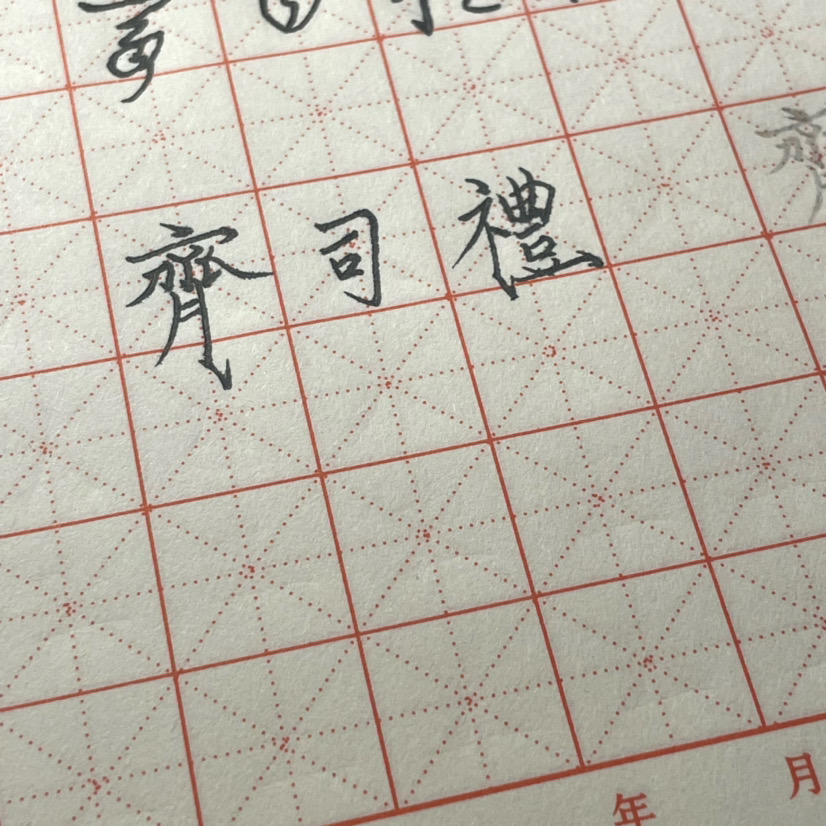 齊司禮
年 月